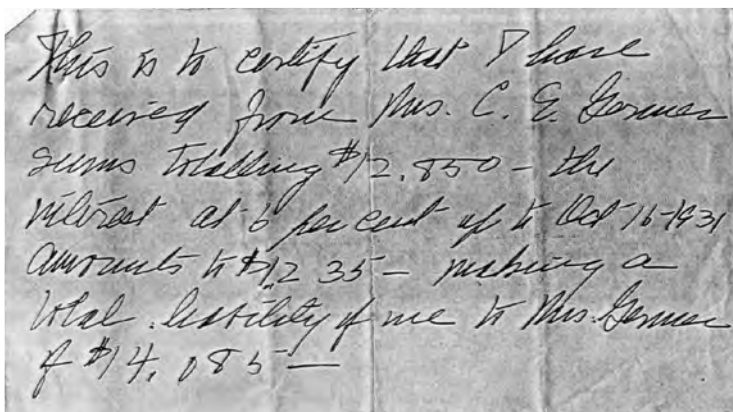 This is to certify that I have
received from Mrs. C. E. Germer
sums totalling $12,850 – the
interest at 6 per cent up to Oct 16-1931
amounts to $1,235 – making a
total liability of me to Mrs. Germer
of $14,085 —